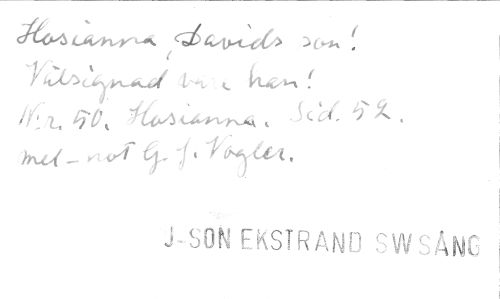 Hosianna, Davids son!
Välsignad vare han!
N:r. 50. Hosianna. Sid. 52.
mel-not G. J. Vogler.
J-SON EKSTRAND SW SÅNG